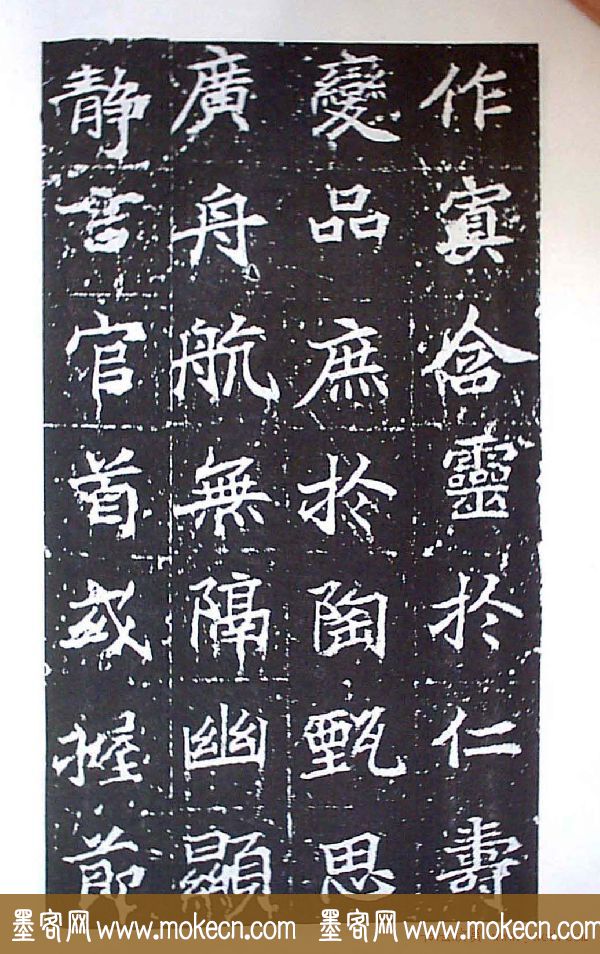 作寘含靈於仁壽
變品庶於陶甄思
廣舟航無隔幽顯
靜言官首或握節
墨客网 www.mokecn.com 墨客网 www.mokecn.com